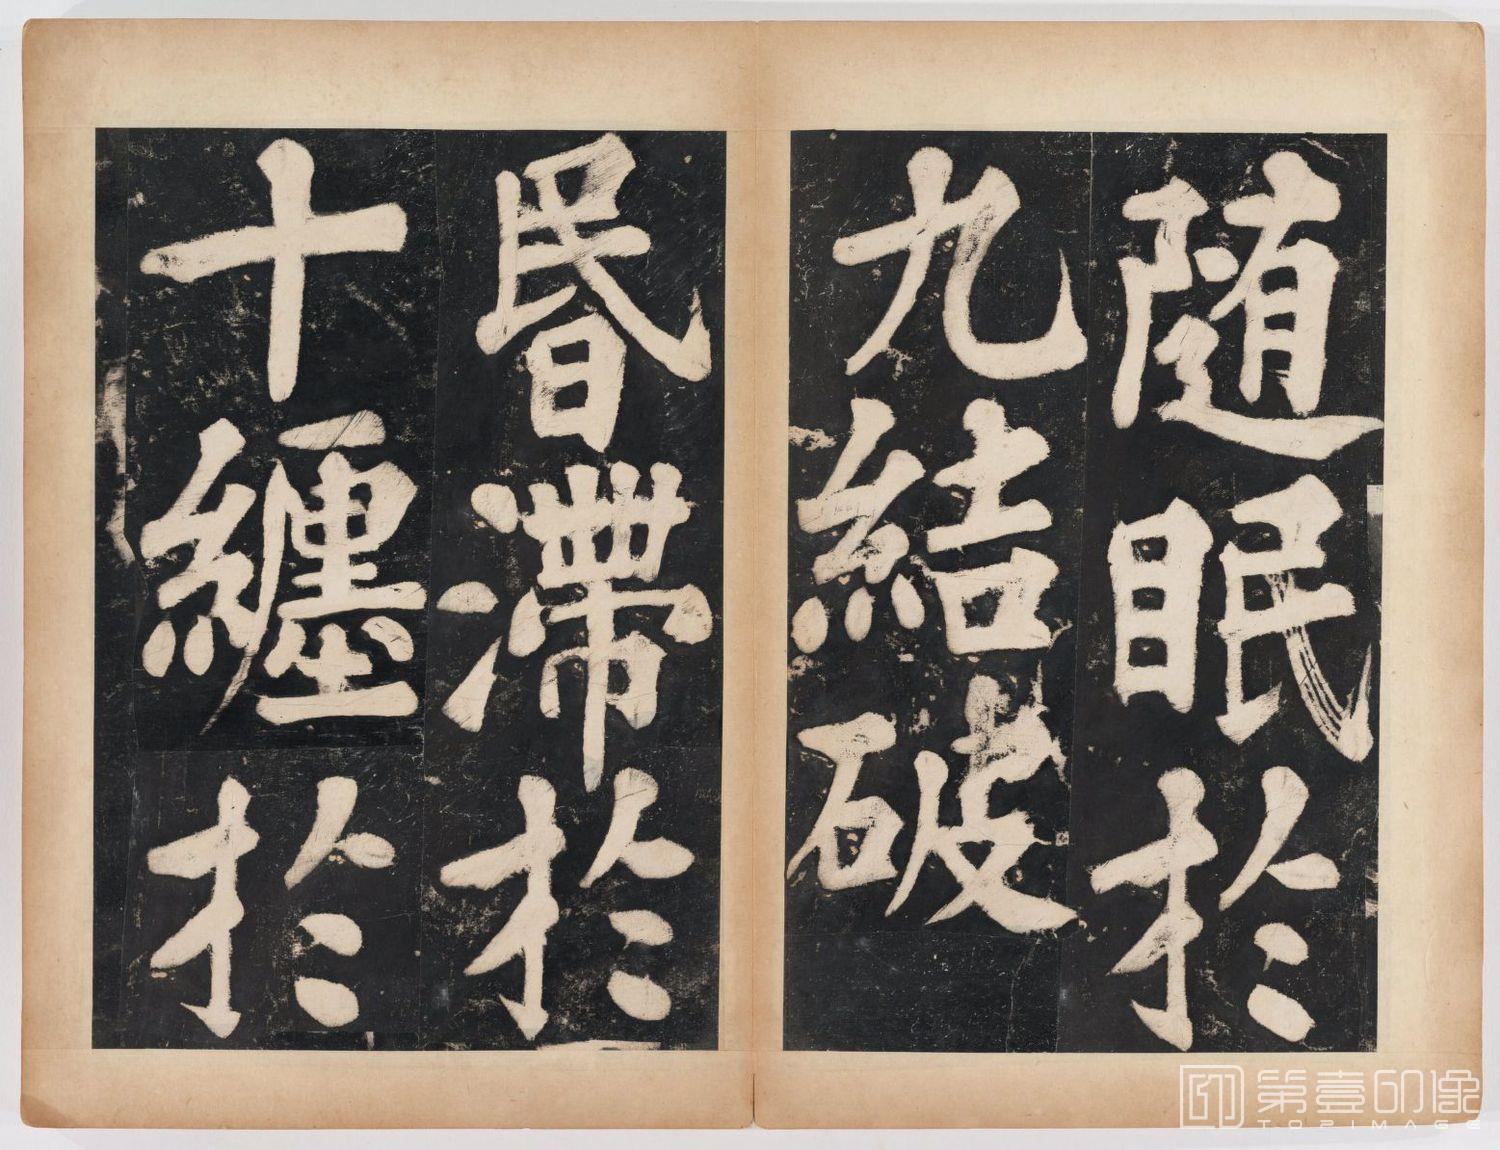 随眠於
九結破
昬滯於
十纏於
第壹印像
TOPIMAGE